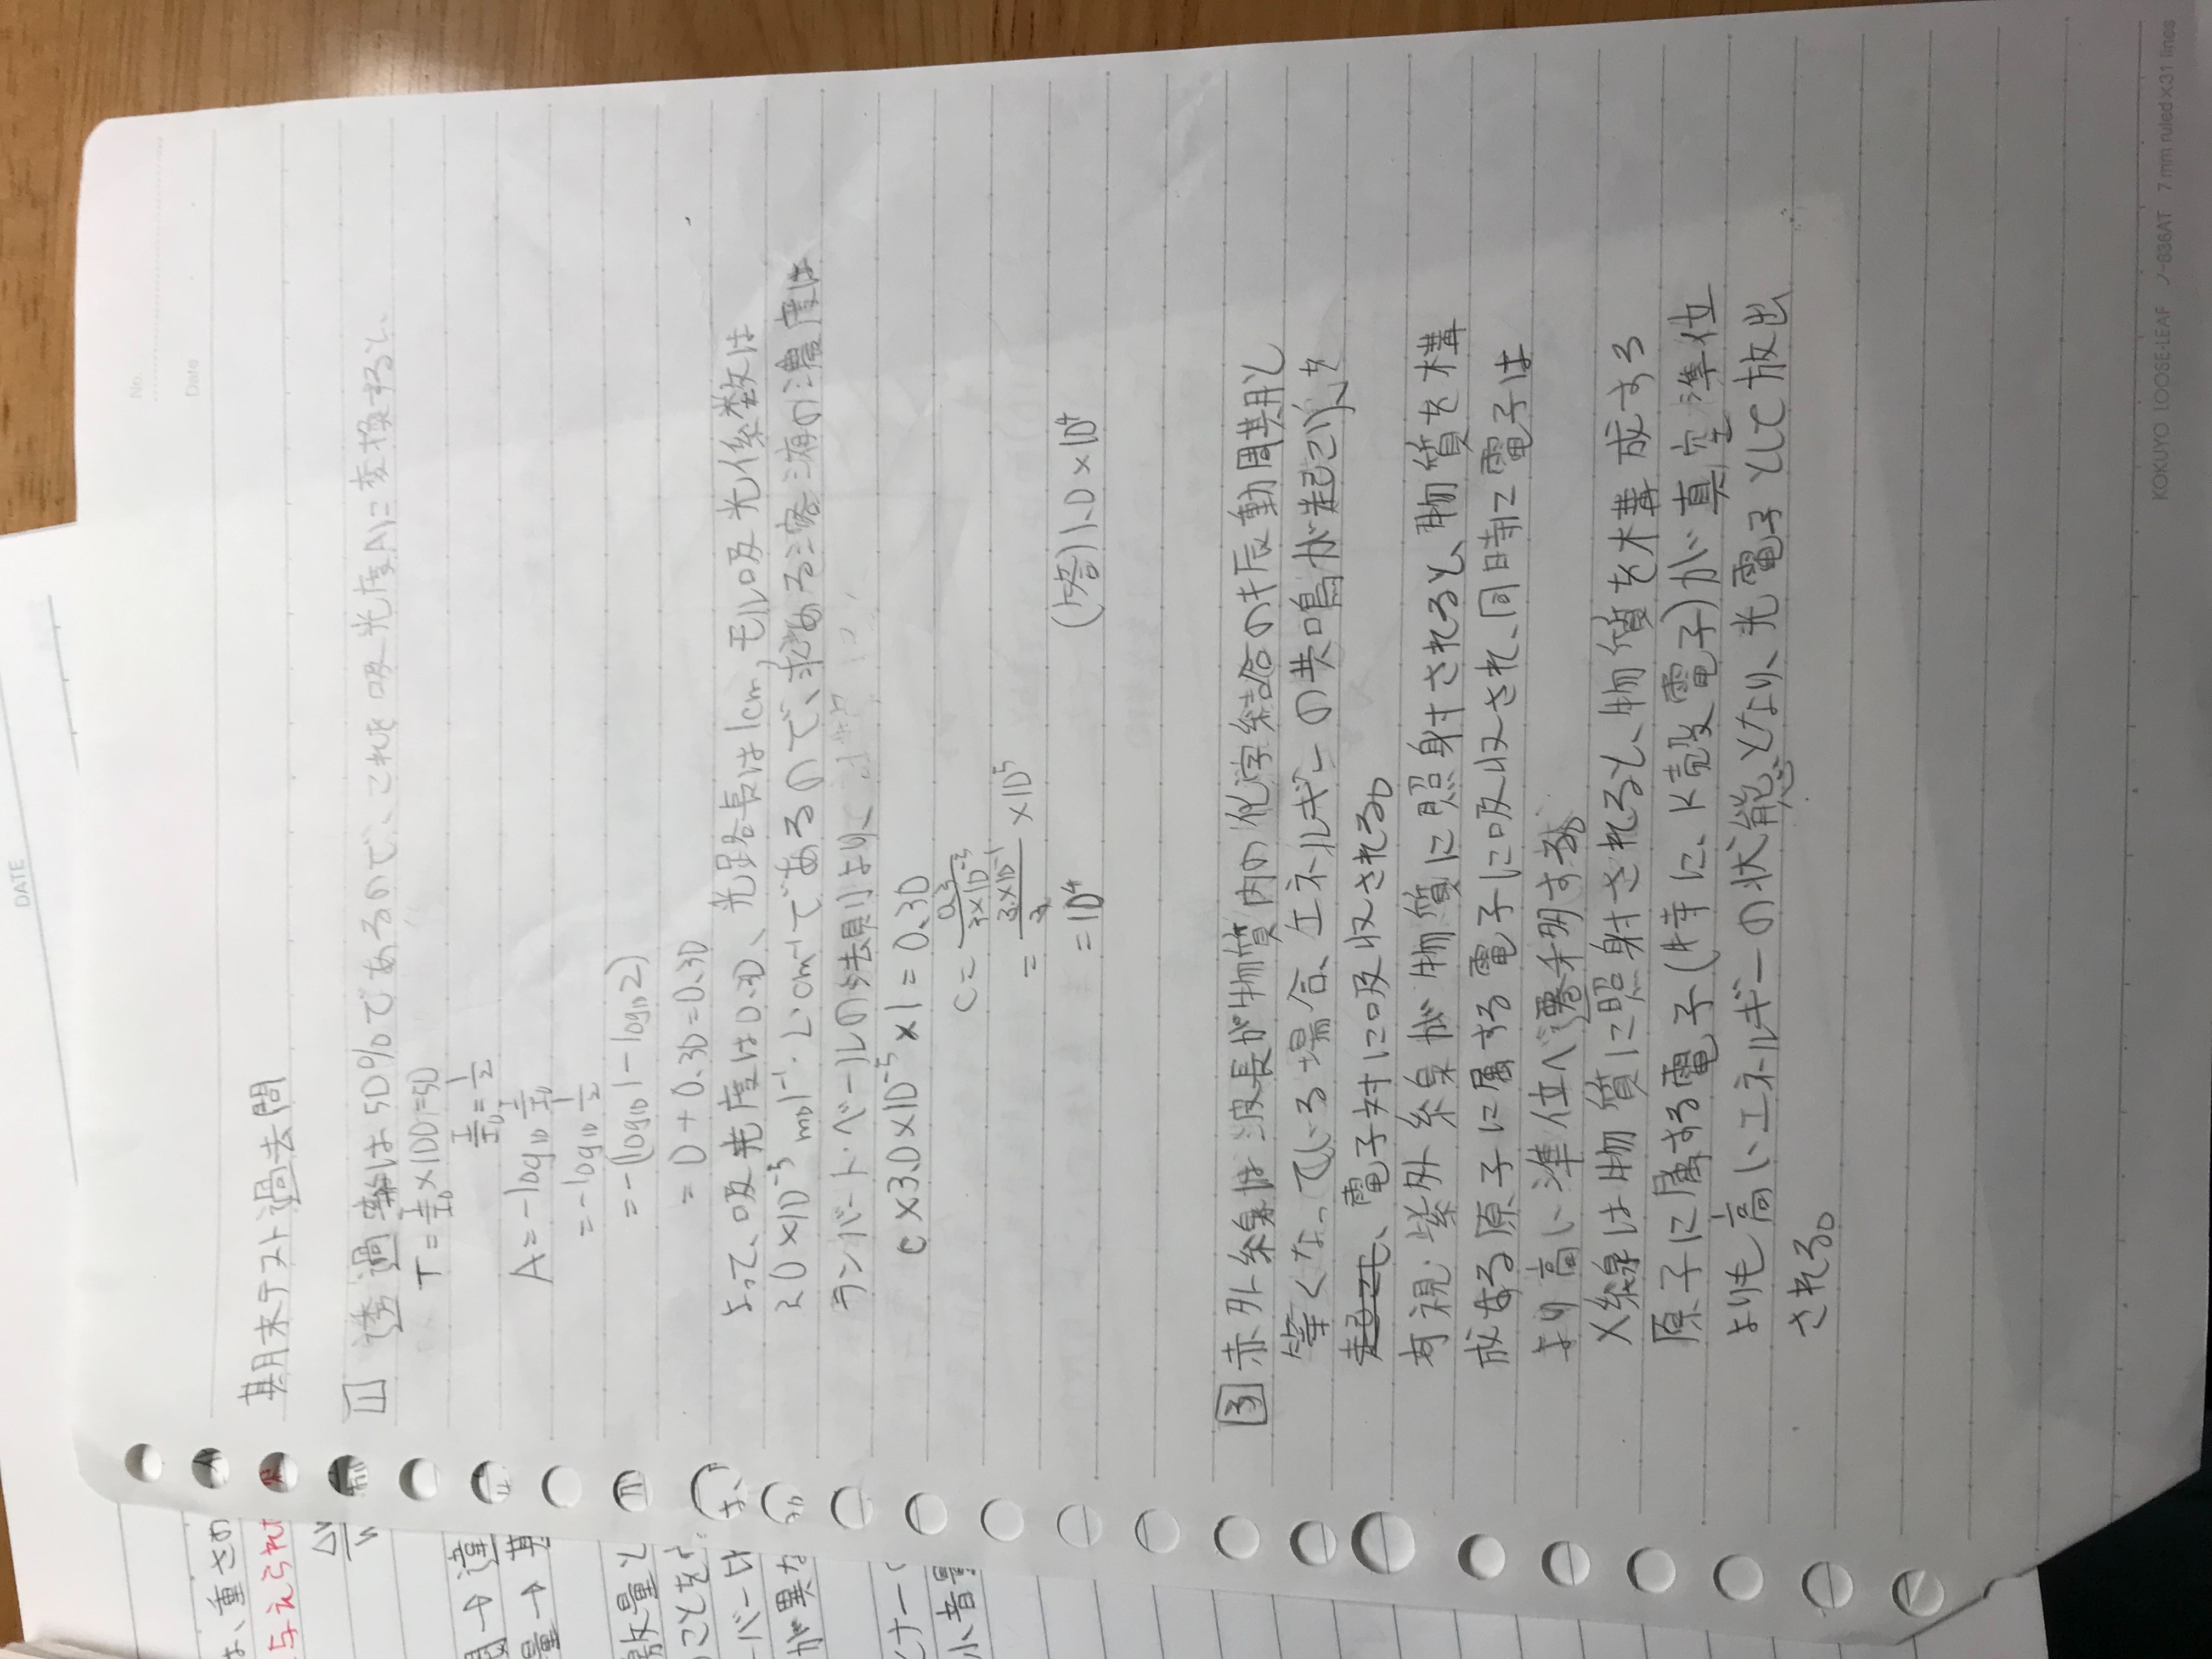 DATE
No.
Date
は、重さの
与えられた
期末テスト過去問
1 透過率は50%であるので、これを吸光度Aに変換すると、
T = I/I0 × 100 = 50
I/I0 = 1/2
A = -log10 I/I0
= -log10 1/2
= -(log10 1 - log10 2)
= 0 + 0.30 = 0.30
よって、吸光度は0.30、光路長は1cm, モル吸光係数は
3.0×10⁻⁵ mol⁻¹・L・cm⁻¹であるので、求める溶液の濃度は
ランバート・ベールの法則より、
c × 3.0×10⁻⁵ × 1 = 0.30
c = 0.3/3×10⁻⁵
= 3×10⁻¹/3 × 10⁵
= 10⁴
(答) 1.0 × 10⁴
3 赤外線は波長が物質内の化学結合の振動周期と
等くなっている場合、エネルギーの共鳴が起こり、
電子対に吸収される。
可視・紫外線が物質に照射されると、物質を構
成する原子に属する電子に吸収され、同時に電子は
より高い準位へ遷移する。
X線は物質に照射されると、物質を構成する
原子に属する電子(特に、K殻電子)が真空準位
よりも高いエネルギーの状態となり、光電子として放出
される。
→ 違
量 → 基
数量と
ことを
が異な
小音量
KOKUYO LOOSE-LEAF ノ-836AT 7 mm ruled×31 lines